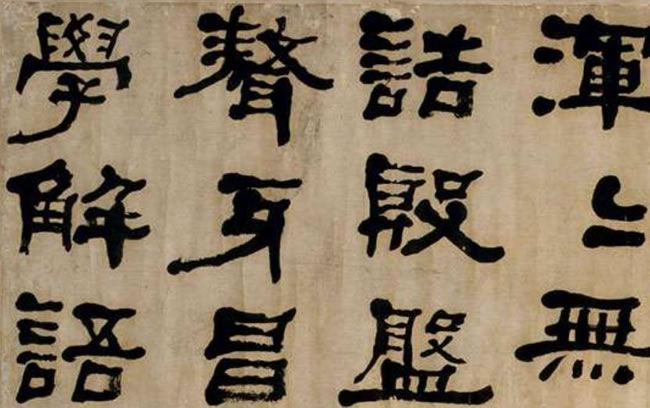 渾〻無
誥殷盤
聱牙昌
學解語